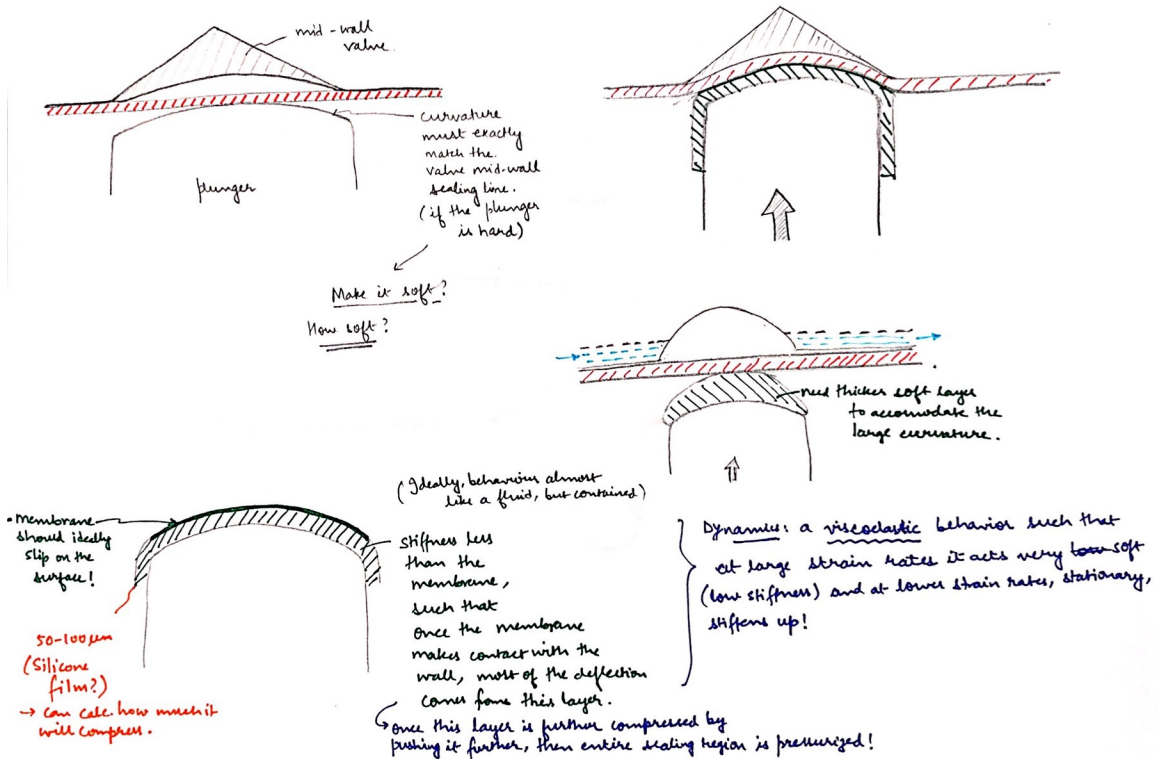 mid-wall
valve.
curvature
must exactly
match the
valve mid-wall
sealing line.
(if the plunger
is hard)
plunger
Make it soft?
How soft?
need thicker soft layer
to accomodate the
large curvature.
(Ideally, behaviour almost
like a fluid, but contained)
membrane
should ideally
slip on the
surface!
stiffness less
than the
membrane,
such that
once the membrane
makes contact with the
wall, most of the deflection
comes from this layer.
Dynamics: a viscoelastic behavior such that
at large strain rates it acts very low soft
(low stiffness) and at lower strain rates, stationary,
stiffens up!
50-100µm
(Silicone
film?)
→ can calc. how much it
will compress.
once this layer is further compressed by
pushing it further, then entire sealing region is pressurized!